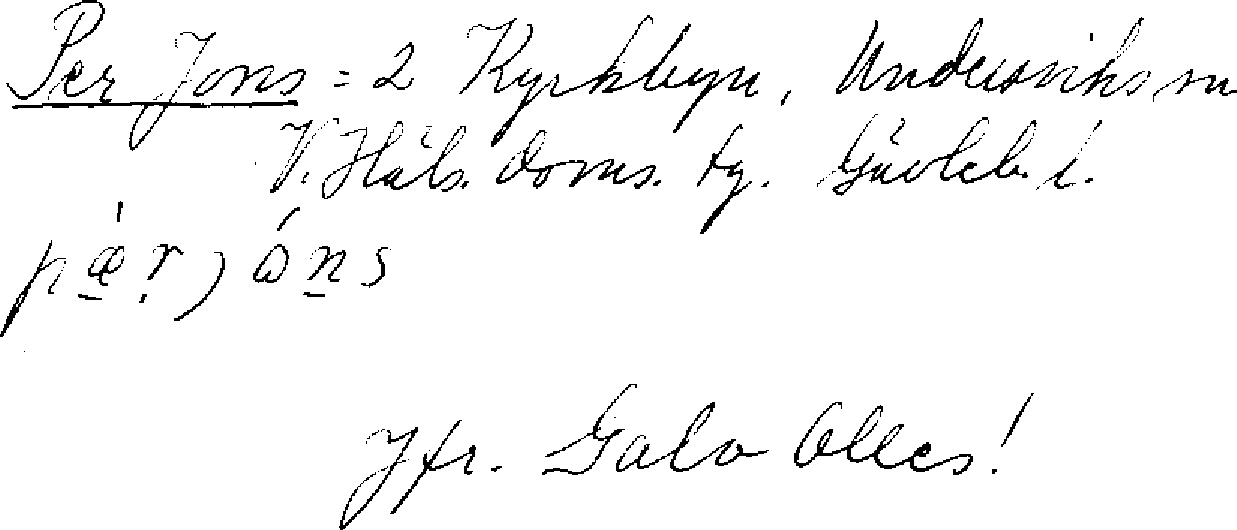 Per Jons = 2 Kyrkbyn, Undersviks sn
V. Häls. doms. tg. Gävleb. l.
Jfr. Gala Olles!